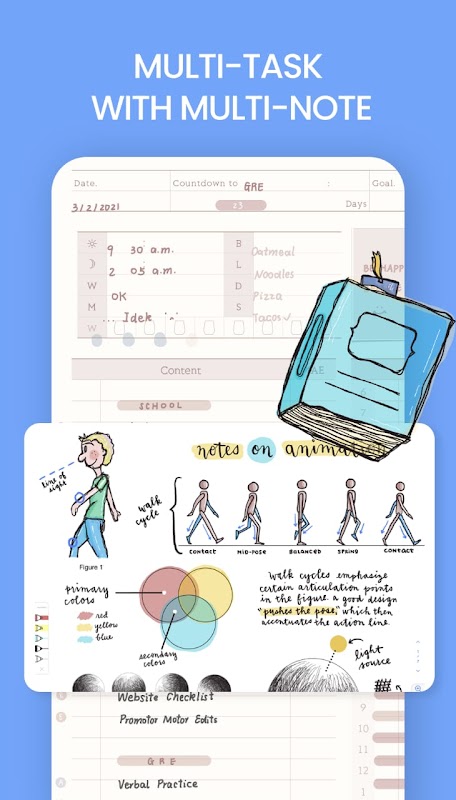 MULTI-TASK
WITH MULTI-NOTE
Date. Countdown to GRE : Goal.
3/2/2021 23 Days
9 30 a.m. B Oatmeal
2 05 a.m. L Noodles
W OK D Pizza
M ... Idek S Tacos
W
Content
SCHOOL
notes on
line of
sight
walk
cycle
CONTACT MID-POSE BALANCED SPRING CONTACT
Figure 1
primary
colors
red
yellow
blue
secondary
colors
walk cycles emphasize
certain articulation points
in the figure. a good design
"pushes the pose," which then
accentuates the action line.
light
source
Website Checklist
Promotor Motor Edits
9
10
11
12
GRE
Verbal Practice